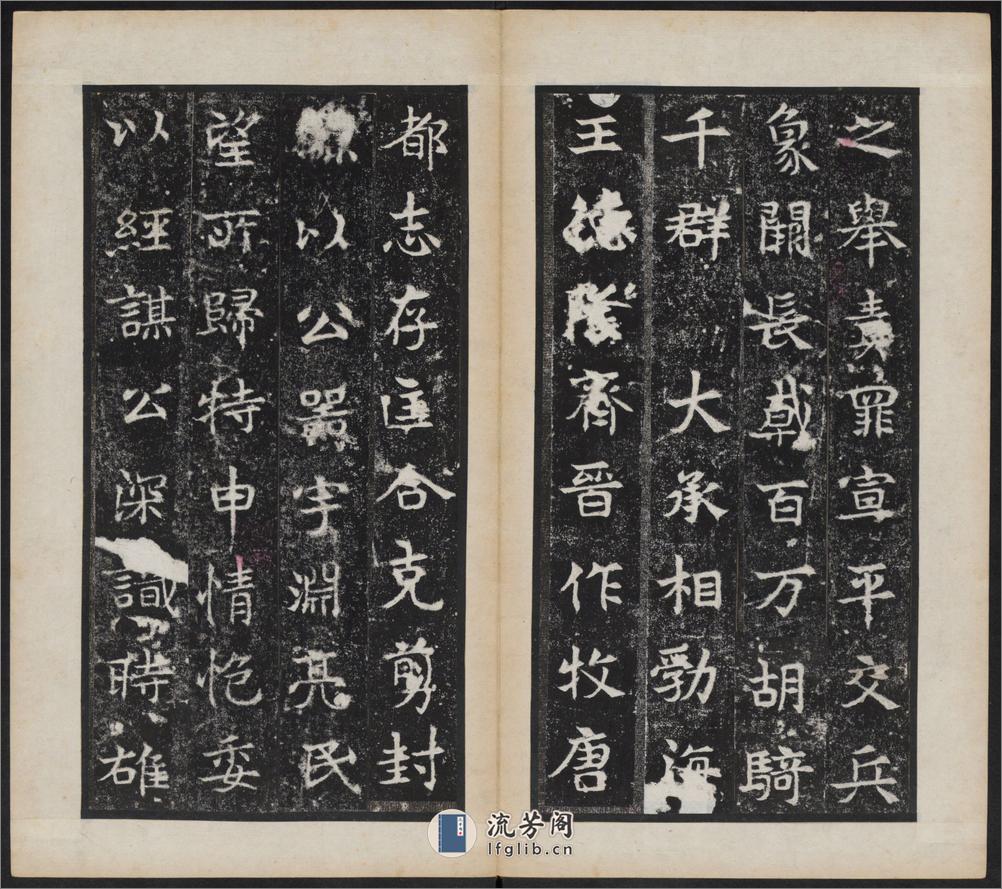 之舉責罪宣平交兵
象闕長戟百万胡騎
千群大承相勃海
王德隆齊晉作牧唐
都志存匡合克剪封
以公器宇淵亮民
望所歸特申情委
以經謀公深識時雄
流芳阁
lfglib.cn